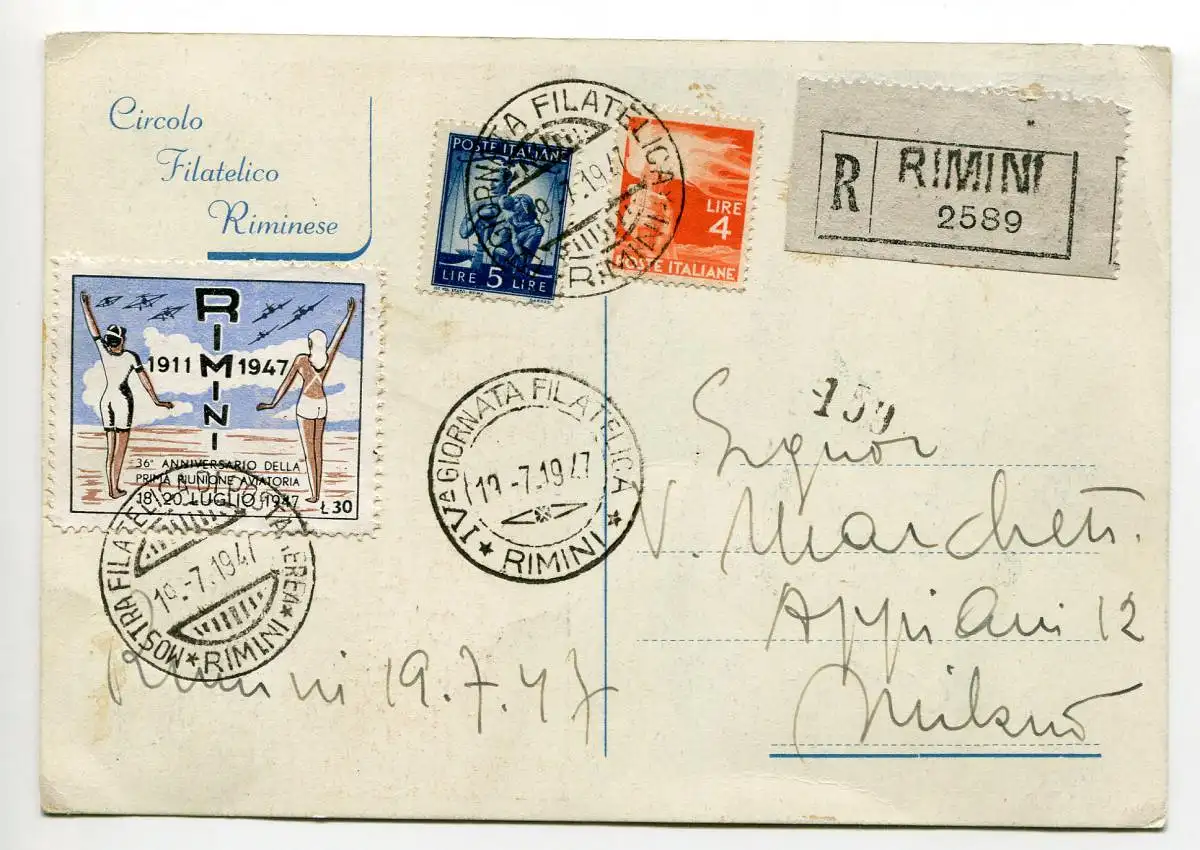 Circolo
Filatelico
Riminese
POSTE ITALIANE
LIRE 5 LIRE
IVª GIORNATA FILATELICA
19.-7.1947
RIMINI
LIRE
4
POSTE ITALIANE
R RIMINI
2589
RIMINI
1911 1947
36° ANNIVERSARIO DELLA
PRIMA RIUNIONE AVIATORIA
18-20 LUGLIO 1947
Ł30
MOSTRA FILATELICA DI POSTA AEREA
19.-7.1947
RIMINI
IVª GIORNATA FILATELICA
19.-7.1947
RIMINI
159
Signor
V. Marchetti
Appiani 12
Milano
Rimini 19.7.47